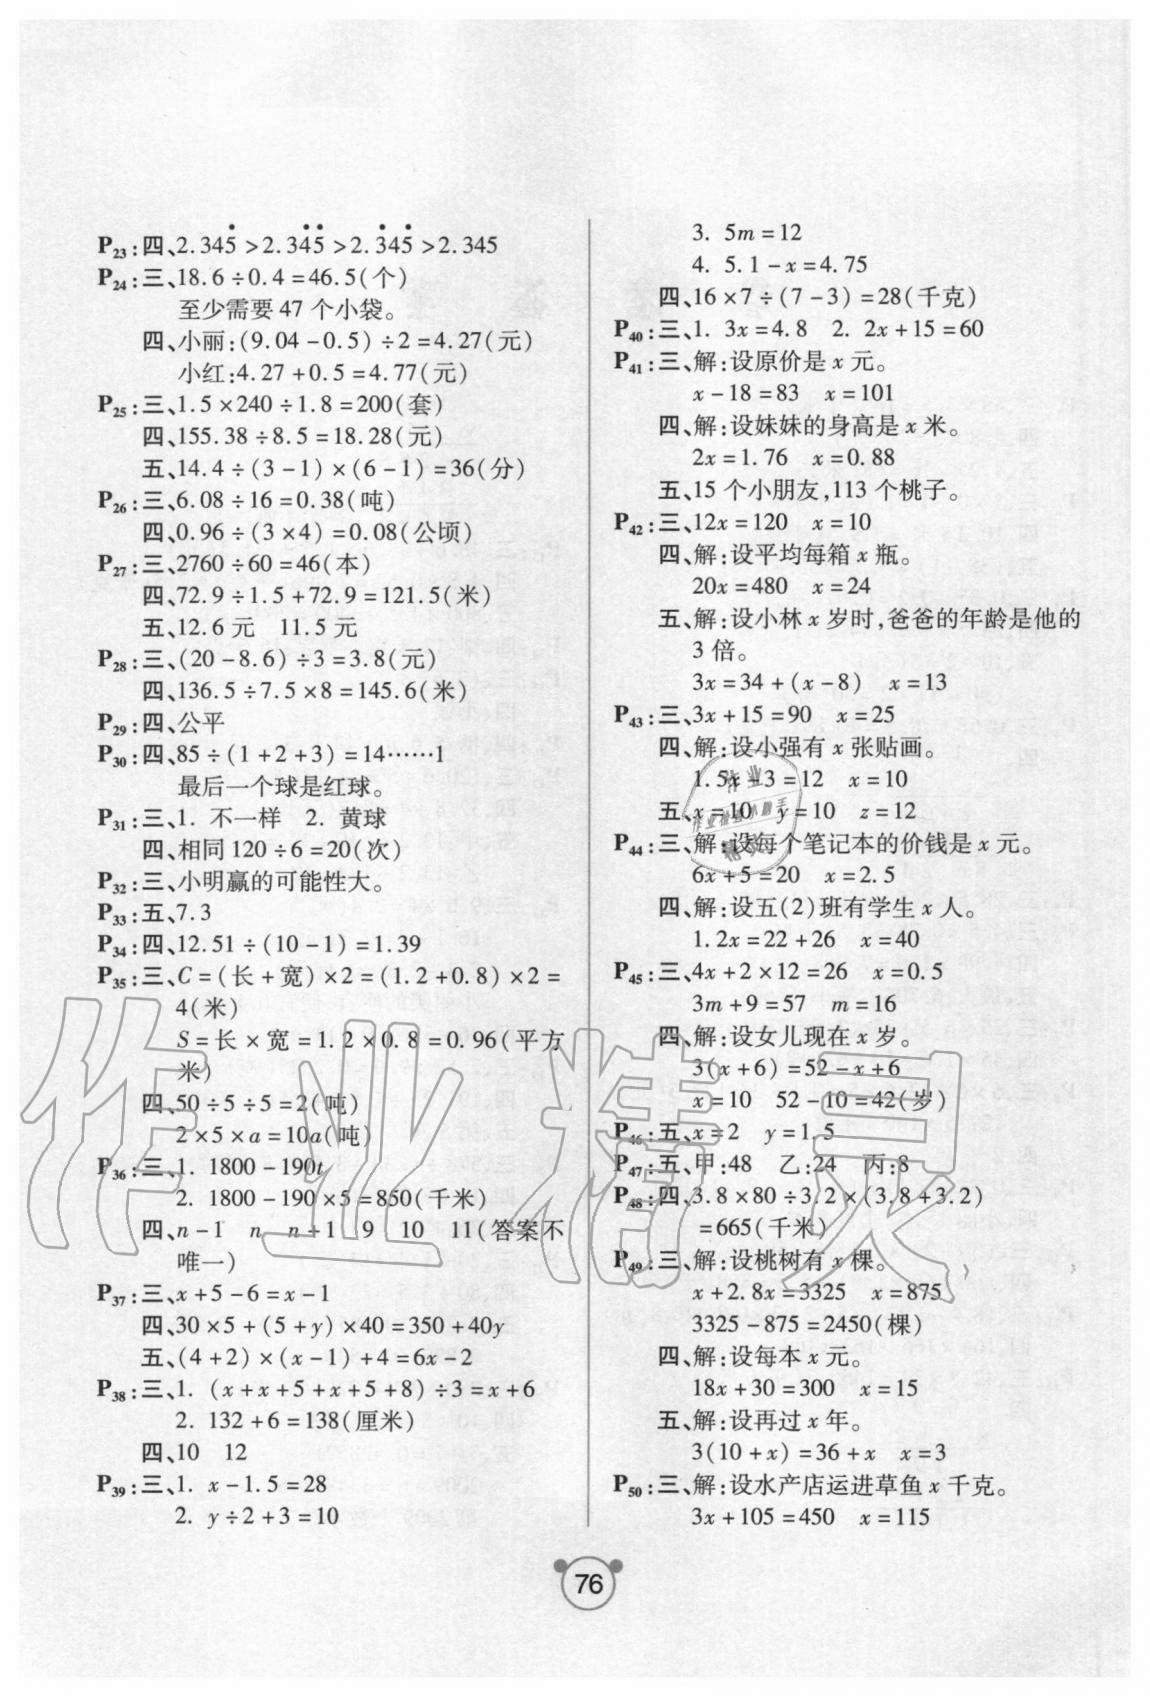 P23:四、2.345̇ >2.34̇5̇ >2.3̇45̇ >2.345
P24:三、18.6÷0.4=46.5(个)
至少需要 47 个小袋。
四、小丽:(9.04-0.5)÷2=4.27(元)
小红:4.27+0.5=4.77(元)
P25:三、1.5×240÷1.8=200(套)
四、155.38÷8.5=18.28(元)
五、14.4÷(3-1)×(6-1)=36(分)
P26:三、6.08÷16=0.38(吨)
四、0.96÷(3×4)=0.08(公顷)
P27:三、2760÷60=46(本)
四、72.9÷1.5+72.9=121.5(米)
五、12.6 元 11.5 元
P28:三、(20-8.6)÷3=3.8(元)
四、136.5÷7.5×8=145.6(米)
P29:四、公平
P30:四、85÷(1+2+3)=14……1
最后一个球是红球。
P31:三、1. 不一样 2. 黄球
四、相同 120÷6=20(次)
P32:三、小明赢的可能性大。
P33:五、7.3
P34:四、12.51÷(10-1)=1.39
P35:三、C=(长+宽)×2=(1.2+0.8)×2=
4(米)
S=长×宽=1.2×0.8=0.96(平方
米)
四、50÷5÷5=2(吨)
2×5×a=10a(吨)
P36:三、1. 1800-190t
2. 1800-190×5=850(千米)
四、n-1 n n+1 9 10 11(答案不
唯一)
P37:三、x+5-6=x-1
四、30×5+(5+y)×40=350+40y
五、(4+2)×(x-1)+4=6x-2
P38:三、1. (x+x+5+x+5+8)÷3=x+6
2. 132+6=138(厘米)
四、10 12
P39:三、1. x-1.5=28
2. y÷2+3=10
3. 5m=12
4. 5.1-x=4.75
四、16×7÷(7-3)=28(千克)
P40:三、1. 3x=4.8 2. 2x+15=60
P41:三、解:设原价是 x 元。
x-18=83 x=101
四、解:设妹妹的身高是 x 米。
2x=1.76 x=0.88
五、15 个小朋友,113 个桃子。
P42:三、12x=120 x=10
四、解:设平均每箱 x 瓶。
20x=480 x=24
五、解:设小林 x 岁时,爸爸的年龄是他的
3 倍。
3x=34+(x-8) x=13
P43:三、3x+15=90 x=25
四、解:设小强有 x 张贴画。
1.5x-3=12 x=10
五、x=10 y=10 z=12
P44:三、解:设每个笔记本的价钱是 x 元。
6x+5=20 x=2.5
四、解:设五(2)班有学生 x 人。
1.2x=22+26 x=40
P45:三、4x+2×12=26 x=0.5
3m+9=57 m=16
四、解:设女儿现在 x 岁。
3(x+6)=52-x+6
x=10 52-10=42(岁)
P46:五、x=2 y=1.5
P47:五、甲:48 乙:24 丙:8
P48:四、3.8×80÷3.2×(3.8+3.2)
=665(千米)
P49:三、解:设桃树有 x 棵。
x+2.8x=3325 x=875
3325-875=2450(棵)
四、解:设每本 x 元。
18x+30=300 x=15
五、解:设再过 x 年。
3(10+x)=36+x x=3
P50:三、解:设水产店运进草鱼 x 千克。
3x+105=450 x=115
76
作业精灵